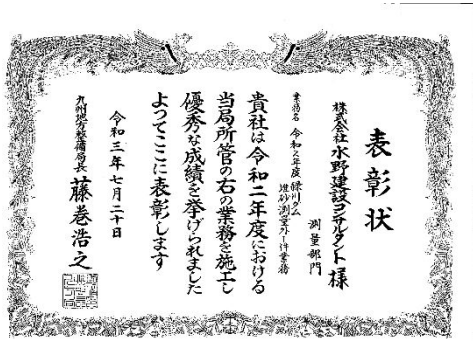 表彰状
株式会社 水野建設コンサルタント 様
測量部門
業務名 令和2年度緑川ダム
堆砂測量外一件業務
貴社は令和二年度における
当局所管の右の業務を施工し
優秀な成績を挙げられました
よってここに表彰します
令和三年七月二十日
九州地方整備局長 藤巻浩之